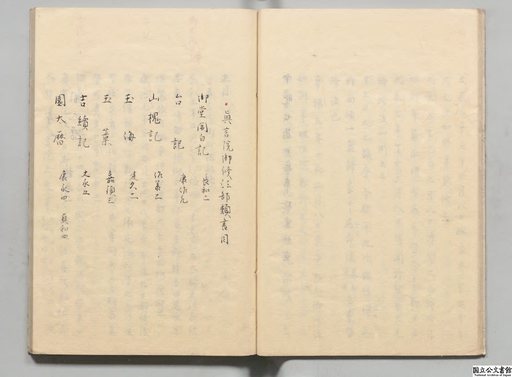 真言院御修法部類書目
御堂関白記 長和二
台記 康治元
山槐記 治承二
玉海 建久二
玉葉 嘉禎三
吉續記 文永五
園太暦 康永四 貞和四
国立公文書館
National Archives of Japan